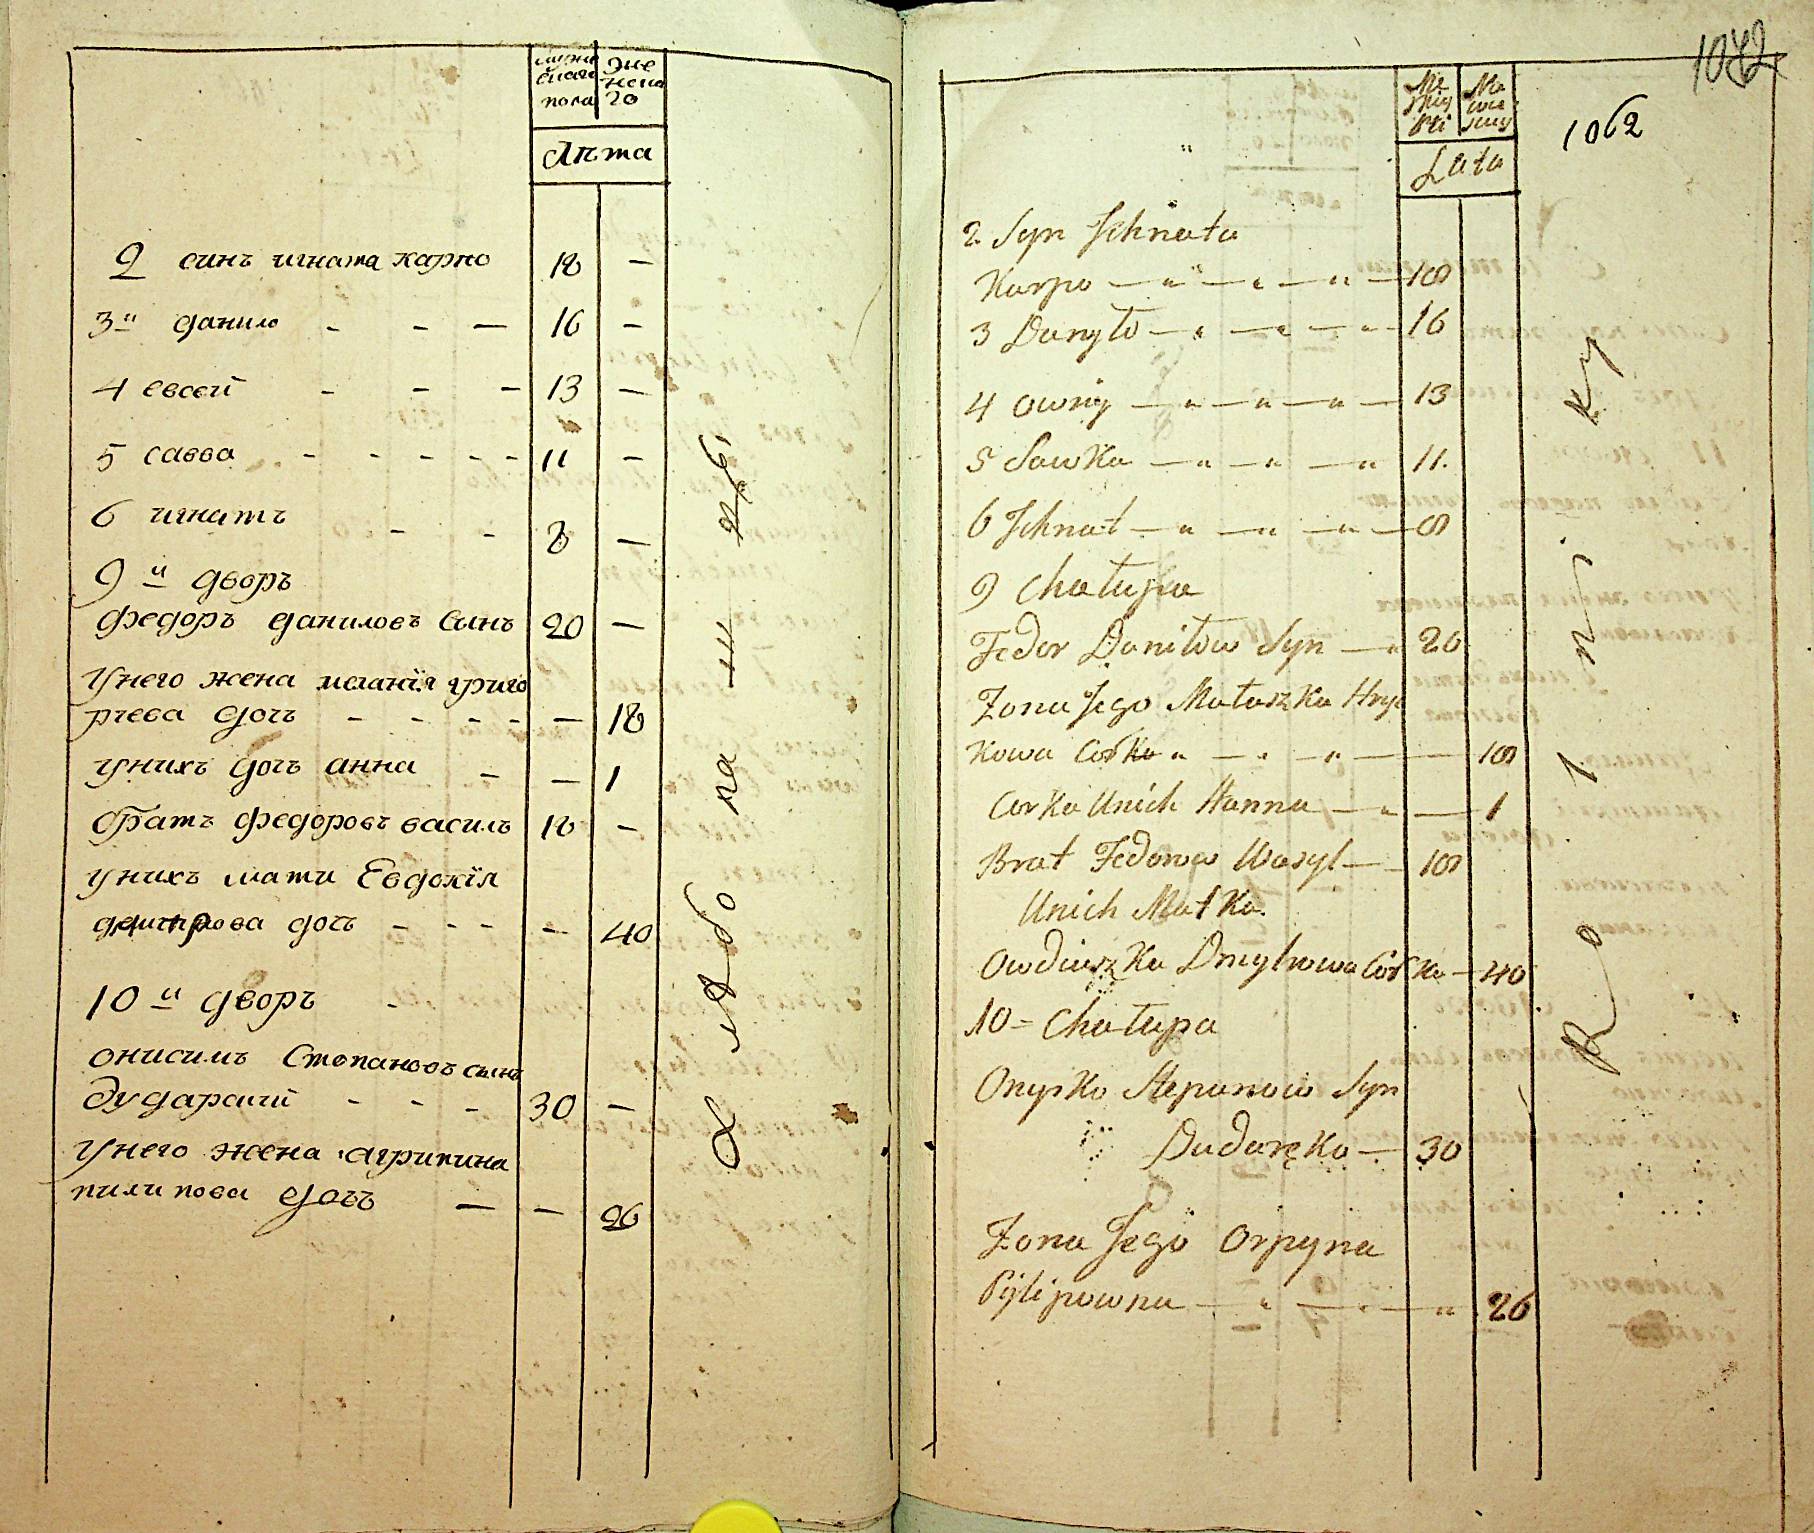 мужескаго пола
Же женска 20
Лѣта
2 синъ игната карпо 18 —
3й данило - - — 16 —
4 евсей - - - 13 —
5 савва - - - - - 11 —
6 игнатъ - - 8 —
9й дворъ
федоръ даниловъ сынъ 20 —
унего жена маланїя григо
риева дочъ - - - - - — 18
унихъ дочъ анна - — 1
братъ федоровъ василъ 18 -
унихъ мати Евдокїя
дмитрова дочъ - - - — 40
10й дворъ -
онисимъ Степановъ сынъ
дударский - - - 30 —
унего жена агрипина
пилипова дочъ — — 26
1062
Lata
2 Syn Jhnata
Karpo — „ — „ — „ — 18
3 Danyło — „ — „ — „ - 16
4 Owsiy — „ — „ — „ — 13
5 Sawka — „ — „ — „ 11.
6 Jhnat — „ — „ — „ — 8
9 Chałupa
Fedor Daniłow Syn — „ 20
Zona Jego Małaszka Hryc
kowa Corka „ — „ — „ — 18
Corka Unich Hanna — „ — 1
Brat Fedorow Wasyl — - 18
Unich Matka.
Owdiuszka Dmytrowa Corka — 40
10 = Chałupa
Onysko Stepanow Syn
Dudaręko — 30
Zona Jego Orpyna
Pylipowna — „ — „ — „ 26